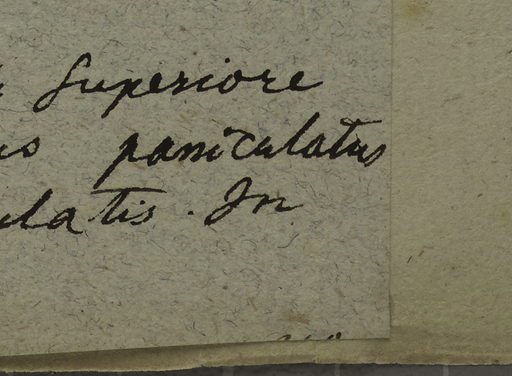 Superiore
us paniculatus
ulatis. In